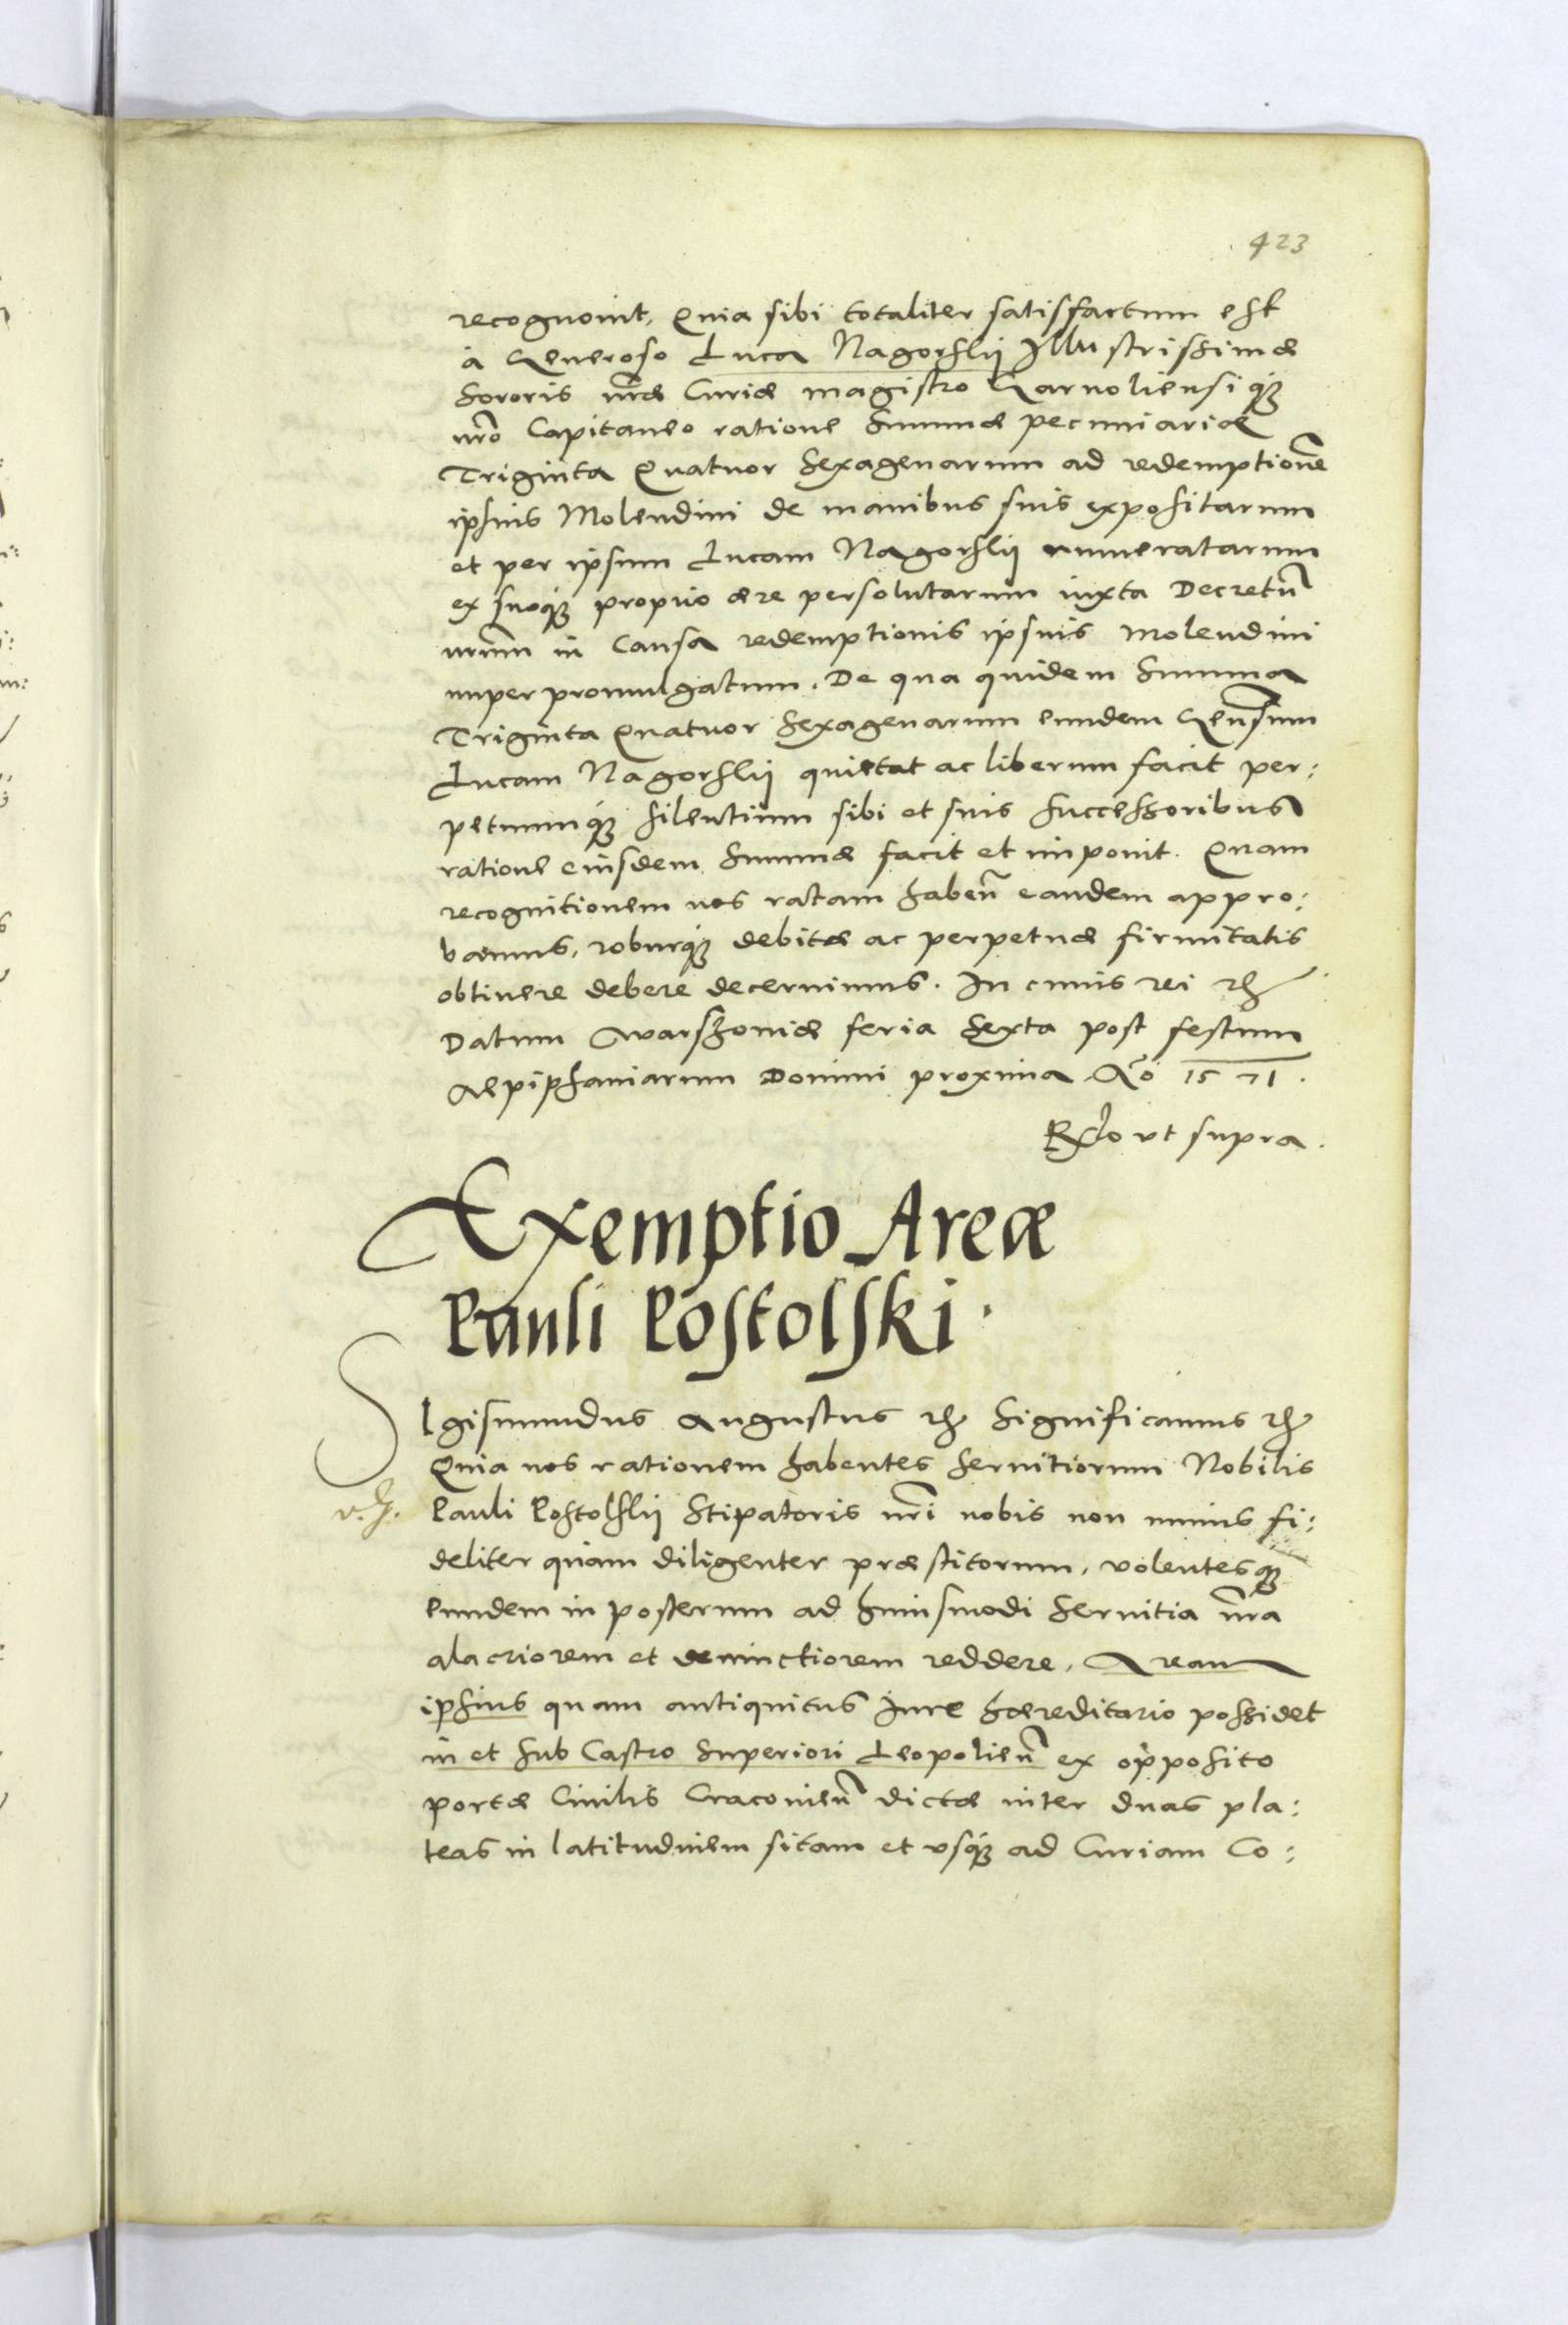 423
recognouit, Quia sibi totaliter satisfactum est
à Generoso Luca Nagorskij Illustrissimæ
Sororis nr̃æ Curiæ magistro Garuoliensiq́ꝫ
nr̃o Capitaneo ratione Summæ pecuniariæ
Triginta Quatuor Sexagenarum ad redemptionẽ
ipsius Molendini de manibus suis expositarum
et per ipsum Lucam Nagorskij numeratarum
ex suoq́ꝫ proprio ære persolutarum iuxta Decretũ
nr̃um in Causa redemptionis ipsius Molendini
nuper promulgatum. De qua quidem Summa
Triginta Quatuor Sexagenarum eundem Gen̄sum
Lucam Nagorskij quietat ac liberum facit per:
petuumq́ꝫ silentium sibi et suis Successoribus
ratione eiusdem Summæ facit et imponit. Quam
recognitionem nos ratam haben̄ eandem appro:
bamus, roburq́ꝫ debitæ ac perpetuæ firmitatis
obtinere debere decernimus. In cuius rei ꝛc̃
Datum Warschouiæ feria Sexta post festum
Aepiphaniarum Domini proxima Aõ 1571.
R̃elo vt supra.
Exemptio Areæ
Pauli Postolski.
SIgismundus Augustus ꝛc̃ Significamus ꝛc̃
Quia nos rationem habentes Seruitiorum Nobilis
Pauli Postolskij Stipatoris nr̃i nobis non minus fi:
deliter quàm diligenter præstitorum, volentesqꝫ
eundem in posterum ad huiusmodi Seruitia nr̃a
alacriorem et deuinctiorem reddere, Aream
ipsius quam antiquitus Iure hæreditario possidet
in et sub Castro Superiori Leopolien̄ ex opposito
portæ Ciuilis Cracouien̄ dictæ inter duas pla:
teas in latitudinem sitam et vsq́ꝫ ad Curiam Co: